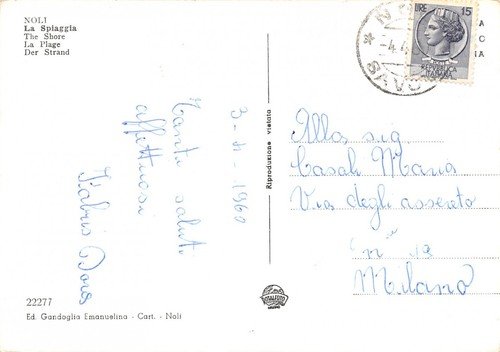 NOLI
La Spiaggia
The Shore
La Plage
Der Strand
3-4-1960
Tanti saluti
affettuosi
Fabris Dora
22277
Ed. Gandoglia Emanuelina - Cart. - Noli
Riproduzione vietata
LIRE 15
REPUBBLICA
ITALIANA
-4.4
SAVO
A
CIA
Alla sig.
Casali Maria
Via degli assereto
n° 19
Milano